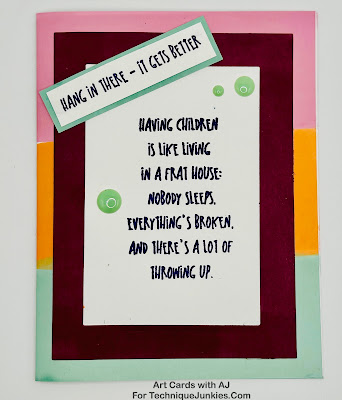 HANG IN THERE – IT GETS BETTER
HAVING CHILDREN
IS LIKE LIVING
IN A FRAT HOUSE:
NOBODY SLEEPS,
EVERYTHING'S BROKEN,
AND THERE'S A LOT OF
THROWING UP.
Art Cards with AJ
For TechniqueJunkies.Com